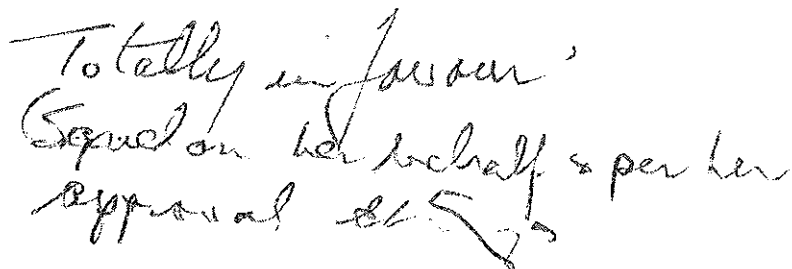 Totally in favour'
(Signed on her behalf & per her
approval